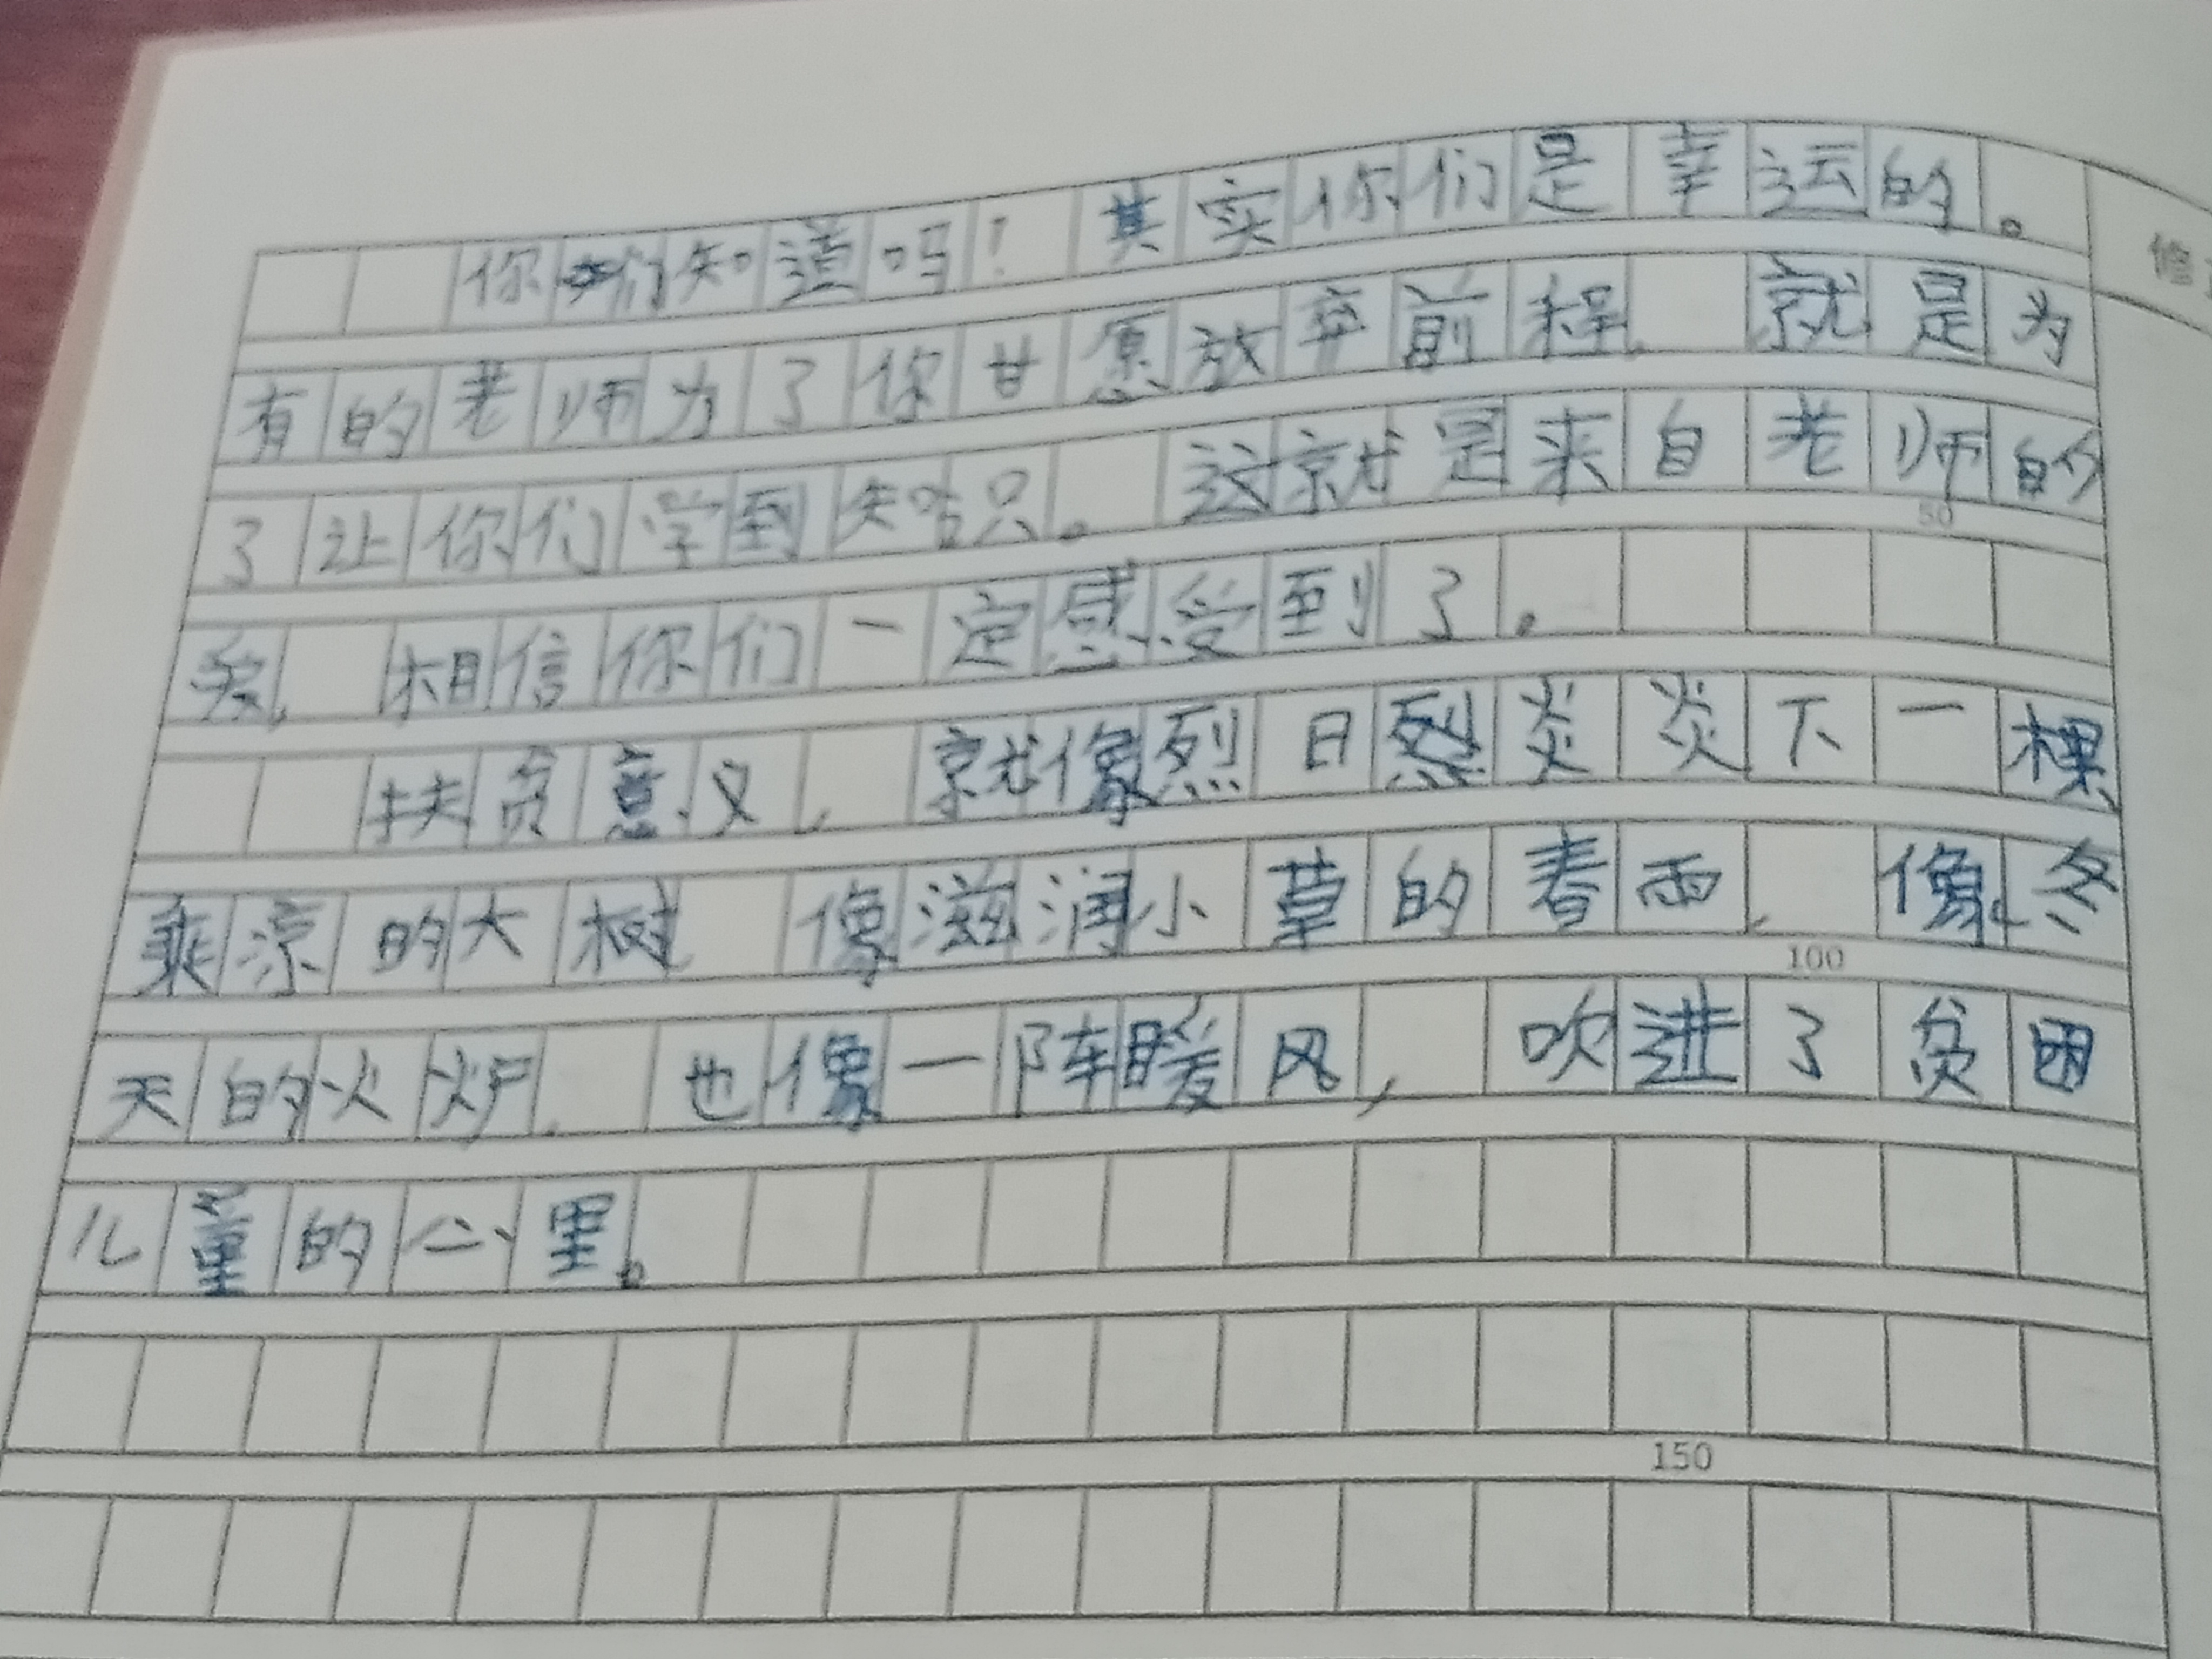 你们知道吗！其实你们是幸运的。
有的老师为了你甘愿放弃前程，就是为
了让你们学到知识。这就是来自老师的
50
爱，相信你们一定感受到了。
扶贫意义，就像烈日烈炎炎下一棵
乘凉的大树，像滋润小草的春雨，像冬
100
天的火炉，也像一阵暖风，吹进了贫困
儿童的心里。
150